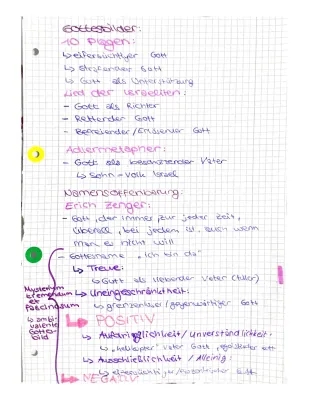 Gottesbilder:
10 Plagen:
↳ eifersüchtiger Gott
↳ strafender Gott
↳ Gott als Unterstützung
Lied der Israeliten:
- Gott als Richter
- Rettender Gott
- Befreiender/Erlösender Gott
Adlermetapher:
- Gott als beschützender Vater
↳ Sohn - Volk Israel
Namensoffenbarung:
Erich Zenger:
- Gott, der immer, zur jeder Zeit,
überall, bei jedem ist, auch wenn
man es nicht will
- Gottesname "Ich bin da"
↳ Treue:
↳ Gott als liebender Vater
↳ Uneingeschränktheit:
↳ grenzenloser/gegenwärtiger Gott
↳ POSITIV
↳ Aufdringlichkeit/Unverständlichkeit:
↳ "helikopter" Vater Gott,
↳ Ausschließlichkeit/Alleinig:
↳ Gott
↳ NEGATIV
Mysterium
tremendum
et
fascinosum
↳ ambi-
valente
Gottes-
bild